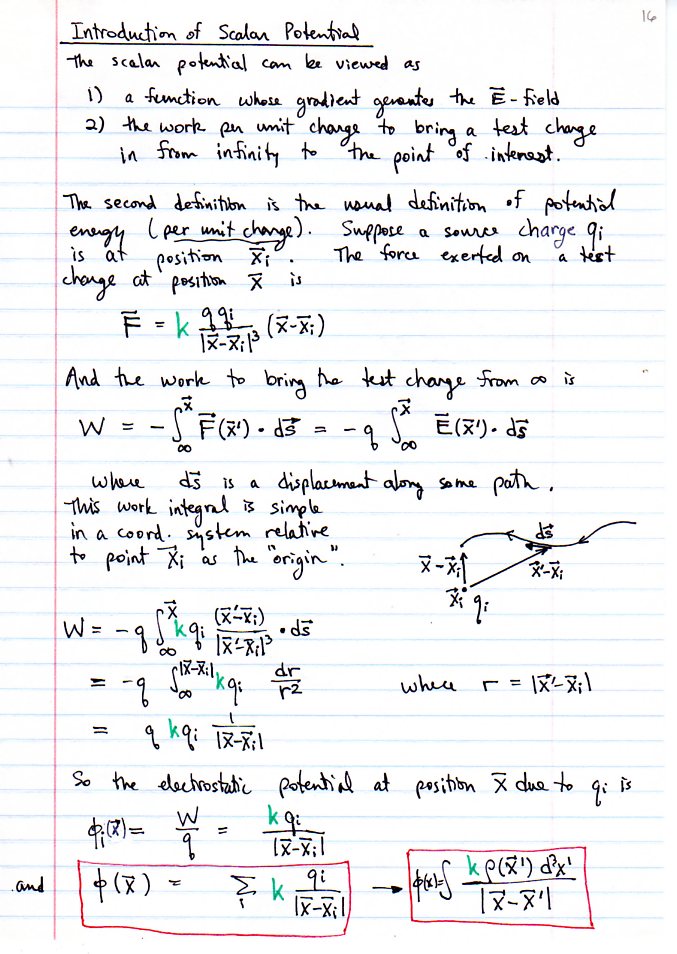 16
Introduction of Scalar Potential
The scalar potential can be viewed as
1) a function whose gradient generates the E⃗-field
2) the work per unit charge to bring a test charge
in from infinity to the point of interest.
The second definition is the usual definition of potential
energy (per unit charge). Suppose a source charge qᵢ
is at position x⃗ᵢ. The force exerted on a test
charge at position x⃗ is
F⃗ = k qqᵢ/|x⃗-x⃗ᵢ|³ (x⃗-x⃗ᵢ)
And the work to bring the test charge from ∞ is
W = -∫_∞^x⃗ F⃗(x⃗')·ds⃗ = -q ∫_∞^x⃗ E⃗(x⃗')·ds⃗
where ds⃗ is a displacement along some path.
This work integral is simple
in a coord. system relative
to point x⃗ᵢ as the "origin".
ds⃗
x⃗-x⃗ᵢ
x⃗'-x⃗ᵢ
x⃗ᵢ qᵢ
W = -q ∫_∞^x⃗ kqᵢ (x⃗'-x⃗ᵢ)/|x⃗'-x⃗ᵢ|³ · ds⃗
= -q ∫_∞^|x⃗-x⃗ᵢ| kqᵢ dr/r² where r = |x⃗'-x⃗ᵢ|
= q kqᵢ 1/|x⃗-x⃗ᵢ|
So the electrostatic potential at position x⃗ due to qᵢ is
ϕᵢ(x⃗) = W/q = kqᵢ/|x⃗-x⃗ᵢ|
and ϕ(x⃗) = Σᵢ k qᵢ/|x⃗-x⃗ᵢ| → ϕ(x)=∫ kρ(x⃗') d³x'/|x⃗-x⃗'|